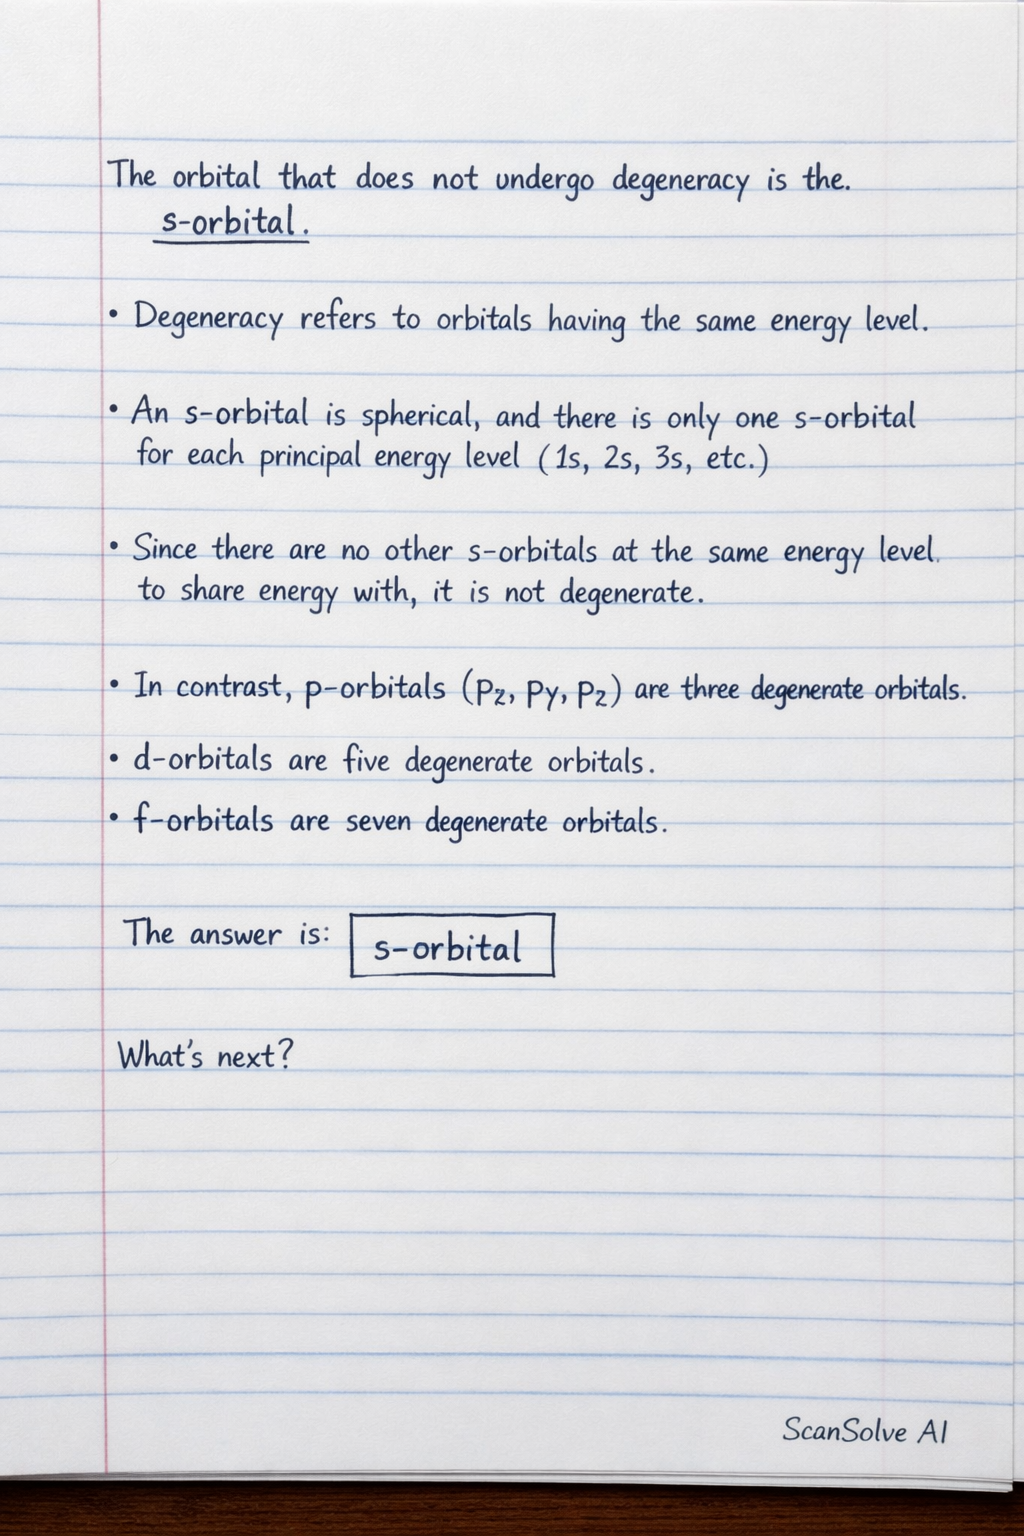 The orbital that does not undergo degeneracy is the.
s-orbital.
• Degeneracy refers to orbitals having the same energy level.
• An s-orbital is spherical, and there is only one s-orbital
for each principal energy level (1s, 2s, 3s, etc.)
• Since there are no other s-orbitals at the same energy level.
to share energy with, it is not degenerate.
• In contrast, p-orbitals (p₂, py, p₂) are three degenerate orbitals.
• d-orbitals are five degenerate orbitals.
• f-orbitals are seven degenerate orbitals.
The answer is: s-orbital
What's next?
ScanSolve AI